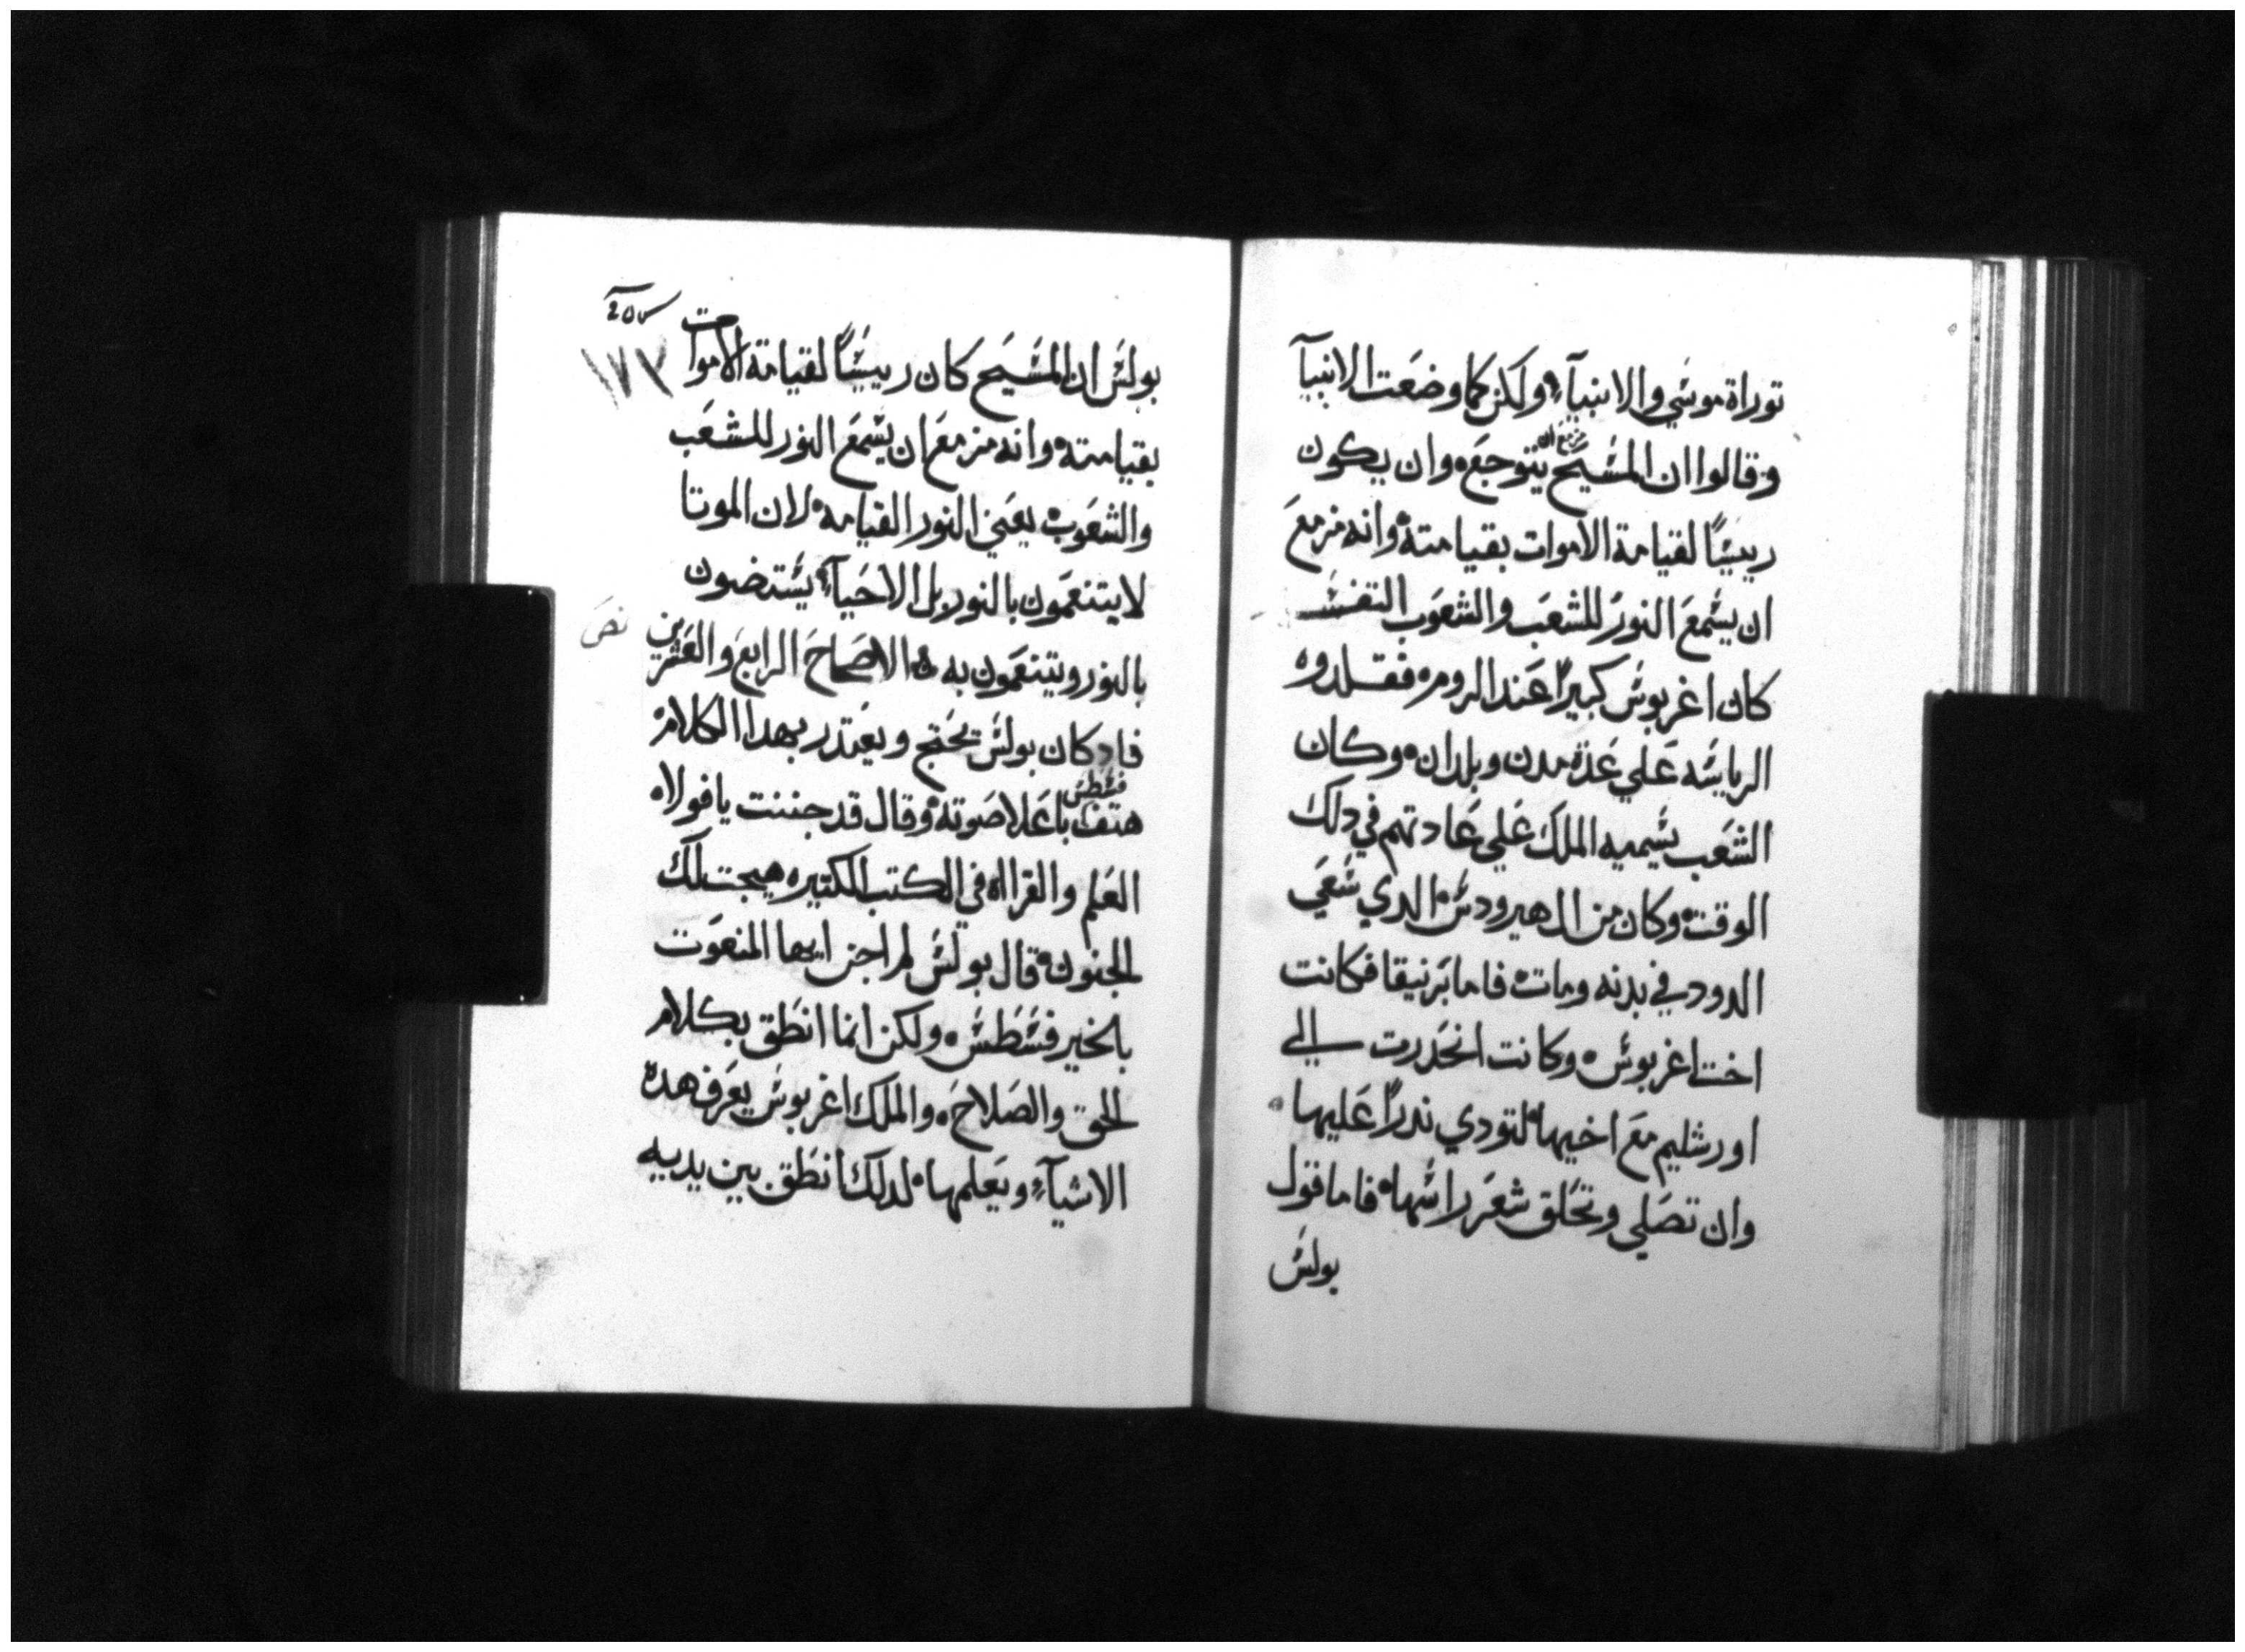 توراة موسي والانبيآء ولكن كما وضعت الانبيآ
وقالوا ان المسيح مزمع ان يتوجع وان يكون
رييسًا لقيامة الاموات بقيامته وانه مزمع
ان يسمع النور للشعب والشعوب التفسـير
كان اغربوس كبيرًا عند الروم فقلدوه
الرياسه علي عدة مدن وبلدان وكان
الشعب يسميه الملك علي عادتهم في دلك
الوقت وكان من ال هيرودس الدي سعي
الدود في بدنه ومات فاما برنيقا فكانت
اخت اغربوس وكانت انحدرت الي
اورشليم مع اخيها لتودي ندرًا عليها
وان تصلي وتحلق شعر راسها فاما قول
بولس
بولس ان المسيح كان رييسًا لقيامة الاموات
بقيامته وانه مزمع ان يسمع النور للشعب
والشعوب يعني النور القيامه لان الموتا
لا يتنعمون بالنور بل الاحيآء يستضون
بالنور ويتنعمون به الاصحاح الرابع والعشرين
نص
فاد كان بولس يحتج ويعتدر بهدا الكلام
هتف فسطس باعلا صوته وقال قد جننت يا فولاه
العلم والقراه في الكتب الكتيره هيجت لك
الجنون قال بولس لم اجن ايها المنعوت
بالخير فسطس ولكن انما انطق بكلام
الحق والصلاح والملك اغربوس يعرف هده
الاشيآء ويعلمها لدلك انطق بين يديه